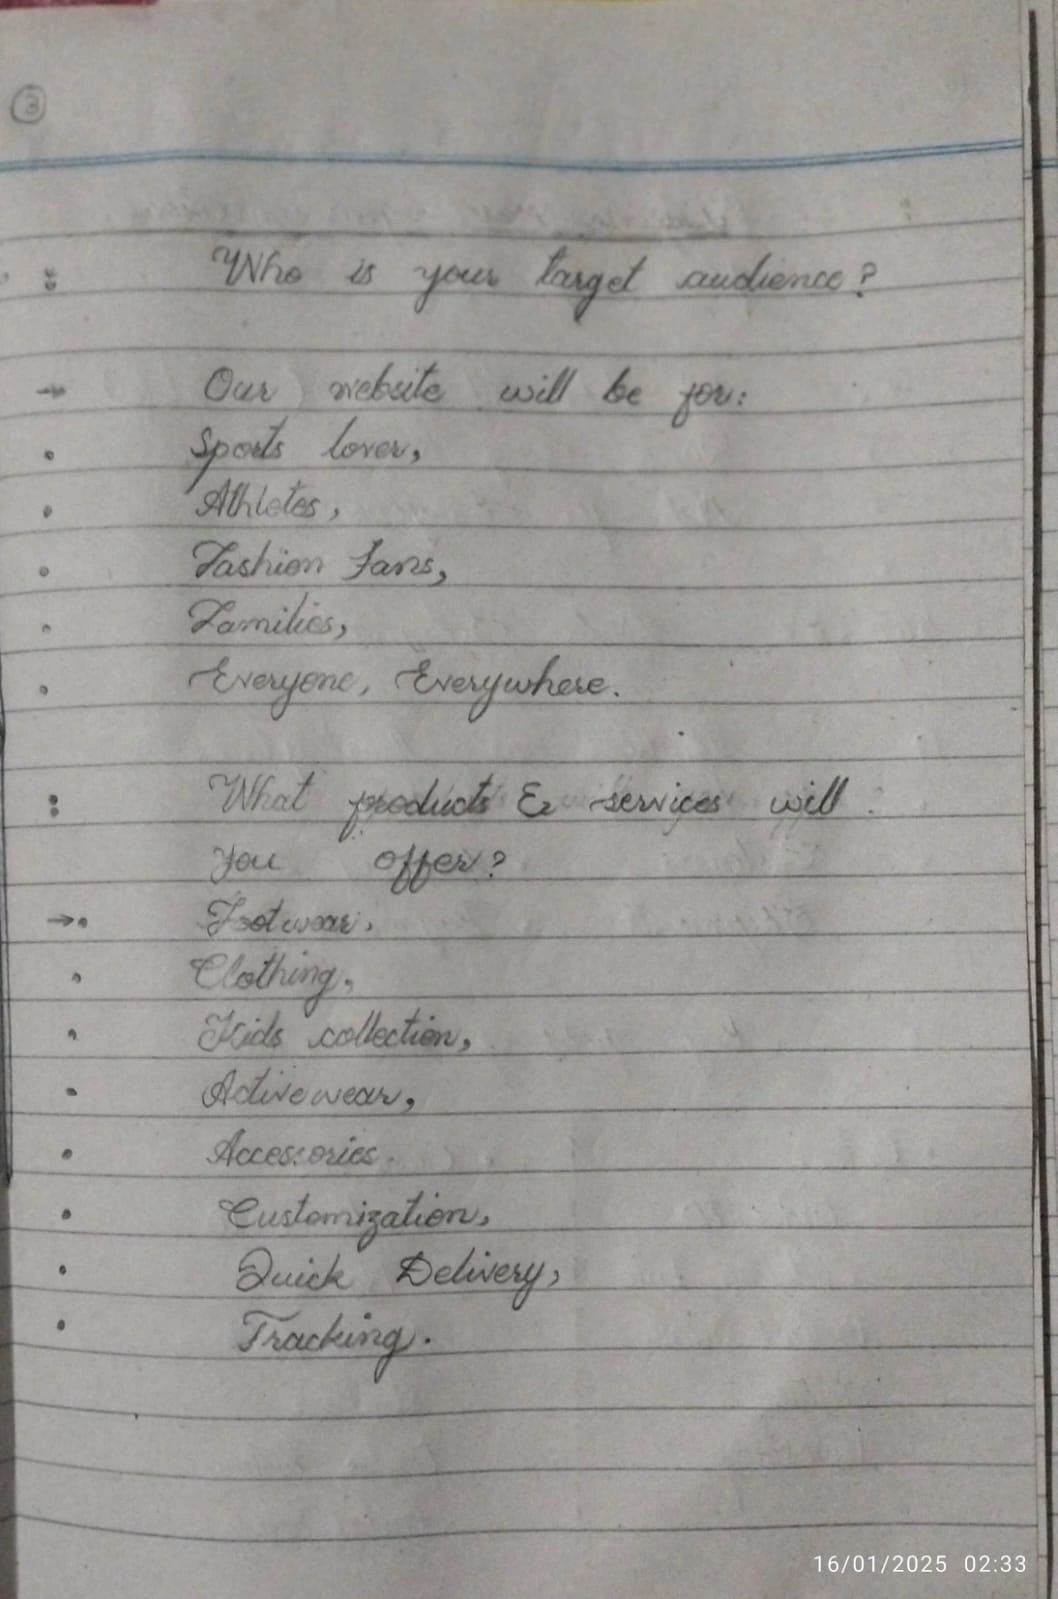 3
: Who is your target audience?
→ Our website will be for:
• Sports lover,
• Athletes,
• Fashion Fans,
• Families,
• Everyone, Everywhere.
: What products & services will
you offer?
→• Footwear,
• Clothing,
• Kids collection,
• Activewear,
• Accessories.
• Customization,
• Quick Delivery,
• Tracking.
16/01/2025 02:33